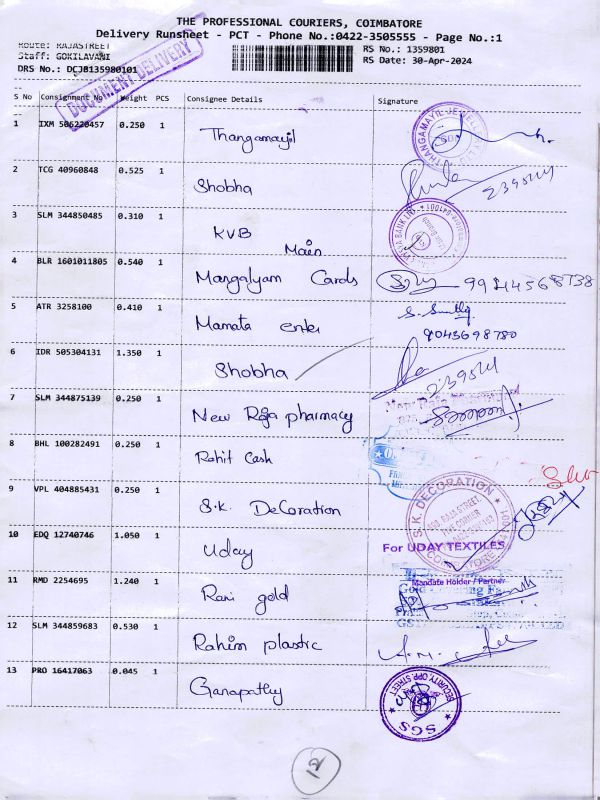 THE PROFESSIONAL COURIERS, COIMBATORE
Delivery Runsheet - PCT - Phone No.:0422-3505555 - Page No.:1
Route: RAJASTREET
Staff: GOKILAVANI
DRS No.: DCJ8135980101
RS No.: 1359801
RS Date: 30-Apr-2024
DOCUMENT DELIVERY
S No Consignment No Weight PCS Consignee Details Signature
1 IXM 506220457 0.250 1 Thangamayil
2 TCG 40960848 0.525 1 Shobha
3 SLM 344850485 0.310 1 KVB Main
4 BLR 1601011805 0.540 1 Mangalyam Cards
5 ATR 3258100 0.410 1 Mamata enter 9043698780
6 IDR 505304131 1.350 1 Shobha
7 SLM 344875139 0.250 1 New Raja pharmacy
8 BHL 100282491 0.250 1 Rohit Cash
9 VPL 404885431 0.250 1 S.K. DeCoration
S.K. DECORATION
10 EDQ 12740746 1.050 1 Uday
For UDAY TEXTILES
Mandate Holder / Partner
11 RMD 2254695 1.240 1 Rani gold
12 SLM 344859683 0.530 1 Rahim plastic
13 PRO 16417063 0.045 1 Ganapathy
SECURITY, OPP. STREET
SGS
12